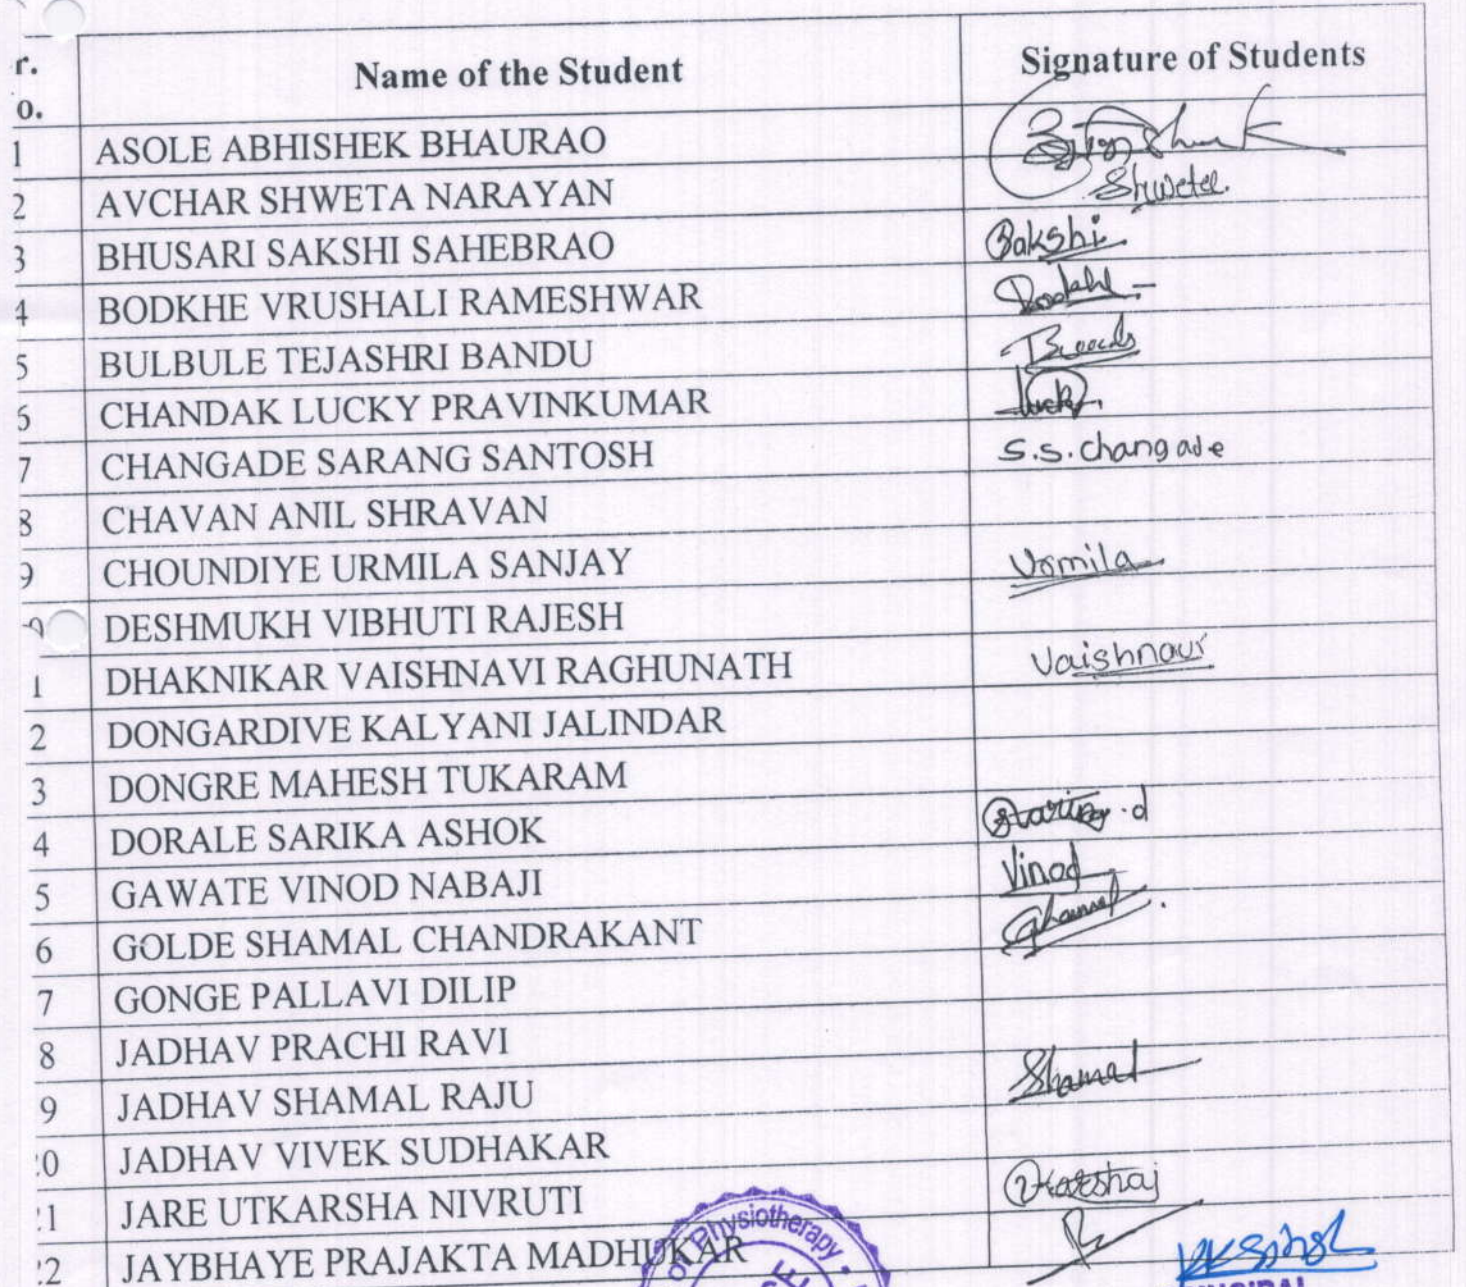 r. Name of the Student Signature of Students
o.
1 ASOLE ABHISHEK BHAURAO
2 AVCHAR SHWETA NARAYAN Shweta
3 BHUSARI SAKSHI SAHEBRAO Sakshi
4 BODKHE VRUSHALI RAMESHWAR
5 BULBULE TEJASHRI BANDU
6 CHANDAK LUCKY PRAVINKUMAR Lucky
7 CHANGADE SARANG SANTOSH S.S.Changade
8 CHAVAN ANIL SHRAVAN
9 CHOUNDIYE URMILA SANJAY Urmila
0 DESHMUKH VIBHUTI RAJESH
1 DHAKNIKAR VAISHNAVI RAGHUNATH Vaishnavi
2 DONGARDIVE KALYANI JALINDAR
3 DONGRE MAHESH TUKARAM
4 DORALE SARIKA ASHOK
5 GAWATE VINOD NABAJI Vinod
6 GOLDE SHAMAL CHANDRAKANT
7 GONGE PALLAVI DILIP
8 JADHAV PRACHI RAVI
9 JADHAV SHAMAL RAJU Shamal
20 JADHAV VIVEK SUDHAKAR
21 JARE UTKARSHA NIVRUTI
22 JAYBHAYE PRAJAKTA MADHUKAR
of Physiotherapy